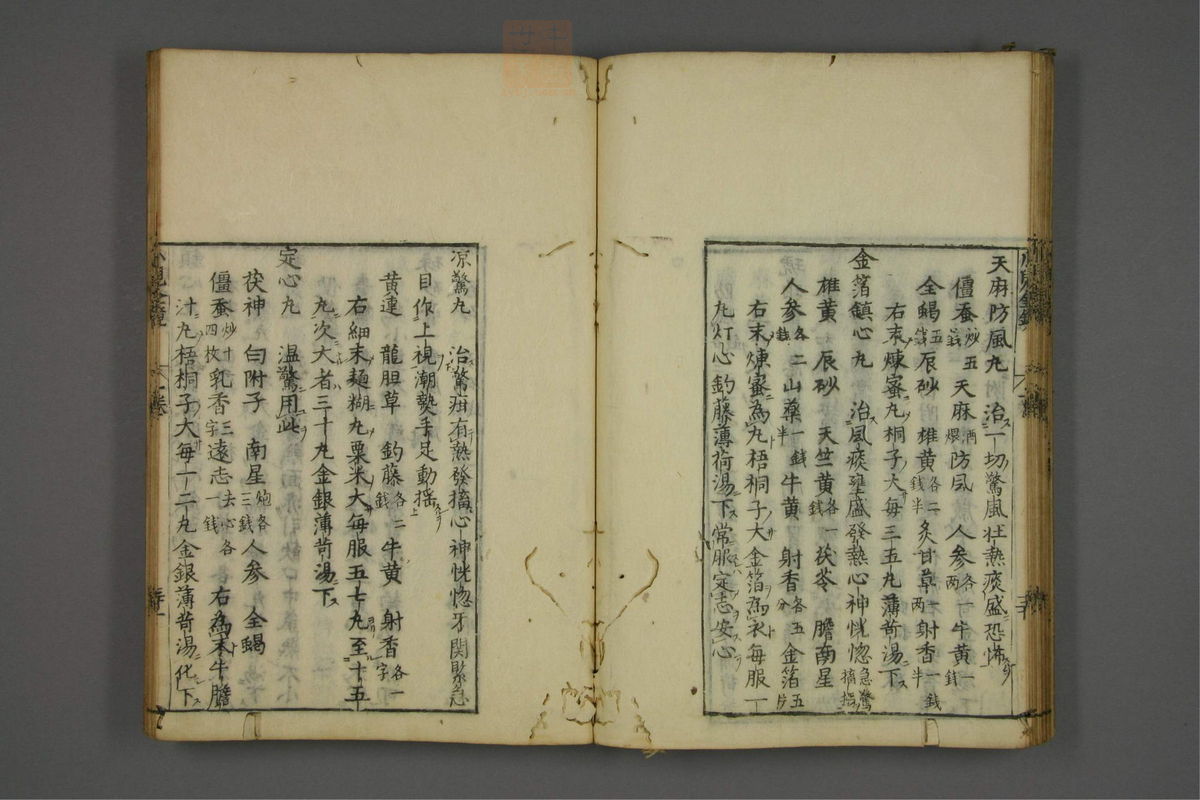 天麻防風丸　治一切驚風壮熱痰盛恐怖
僵蚕炒五錢天麻両煨防風　人参各一両牛黄一錢
全蝎五錢辰砂　雄黄各二錢半炙甘草一両射香一錢半
右末煉蜜丸桐子大每三五丸薄荷湯下
金箔鎮心丸　治風痰壅盛發熱心神恍惚急驚搐搦
雄黄　辰砂　天竺黄各一錢茯苓　膽南星
人参各二錢山藥一錢半牛黄　射香各五分金箔五片
右末煉蜜為丸梧桐子大金箔為衣每服一
丸灯心釣藤薄荷湯下常服定志安心
凉驚丸　治驚疳有熱發搐心神恍惚牙関緊急
目作上視潮熱手足動揺
黄連　龍胆草　釣藤各二錢牛黄　射香各一字
右細末麺糊丸粟米大每服五七丸至十五
丸次大者三十丸金銀薄荷湯下
定心丸　温驚用此
茯神　白附子　南星炮各三錢人参　全蝎
僵蚕炒十四枚乳香三字遠志去心各一錢右為末牛膽
汁丸梧桐子大每一二丸金銀薄荷湯化下